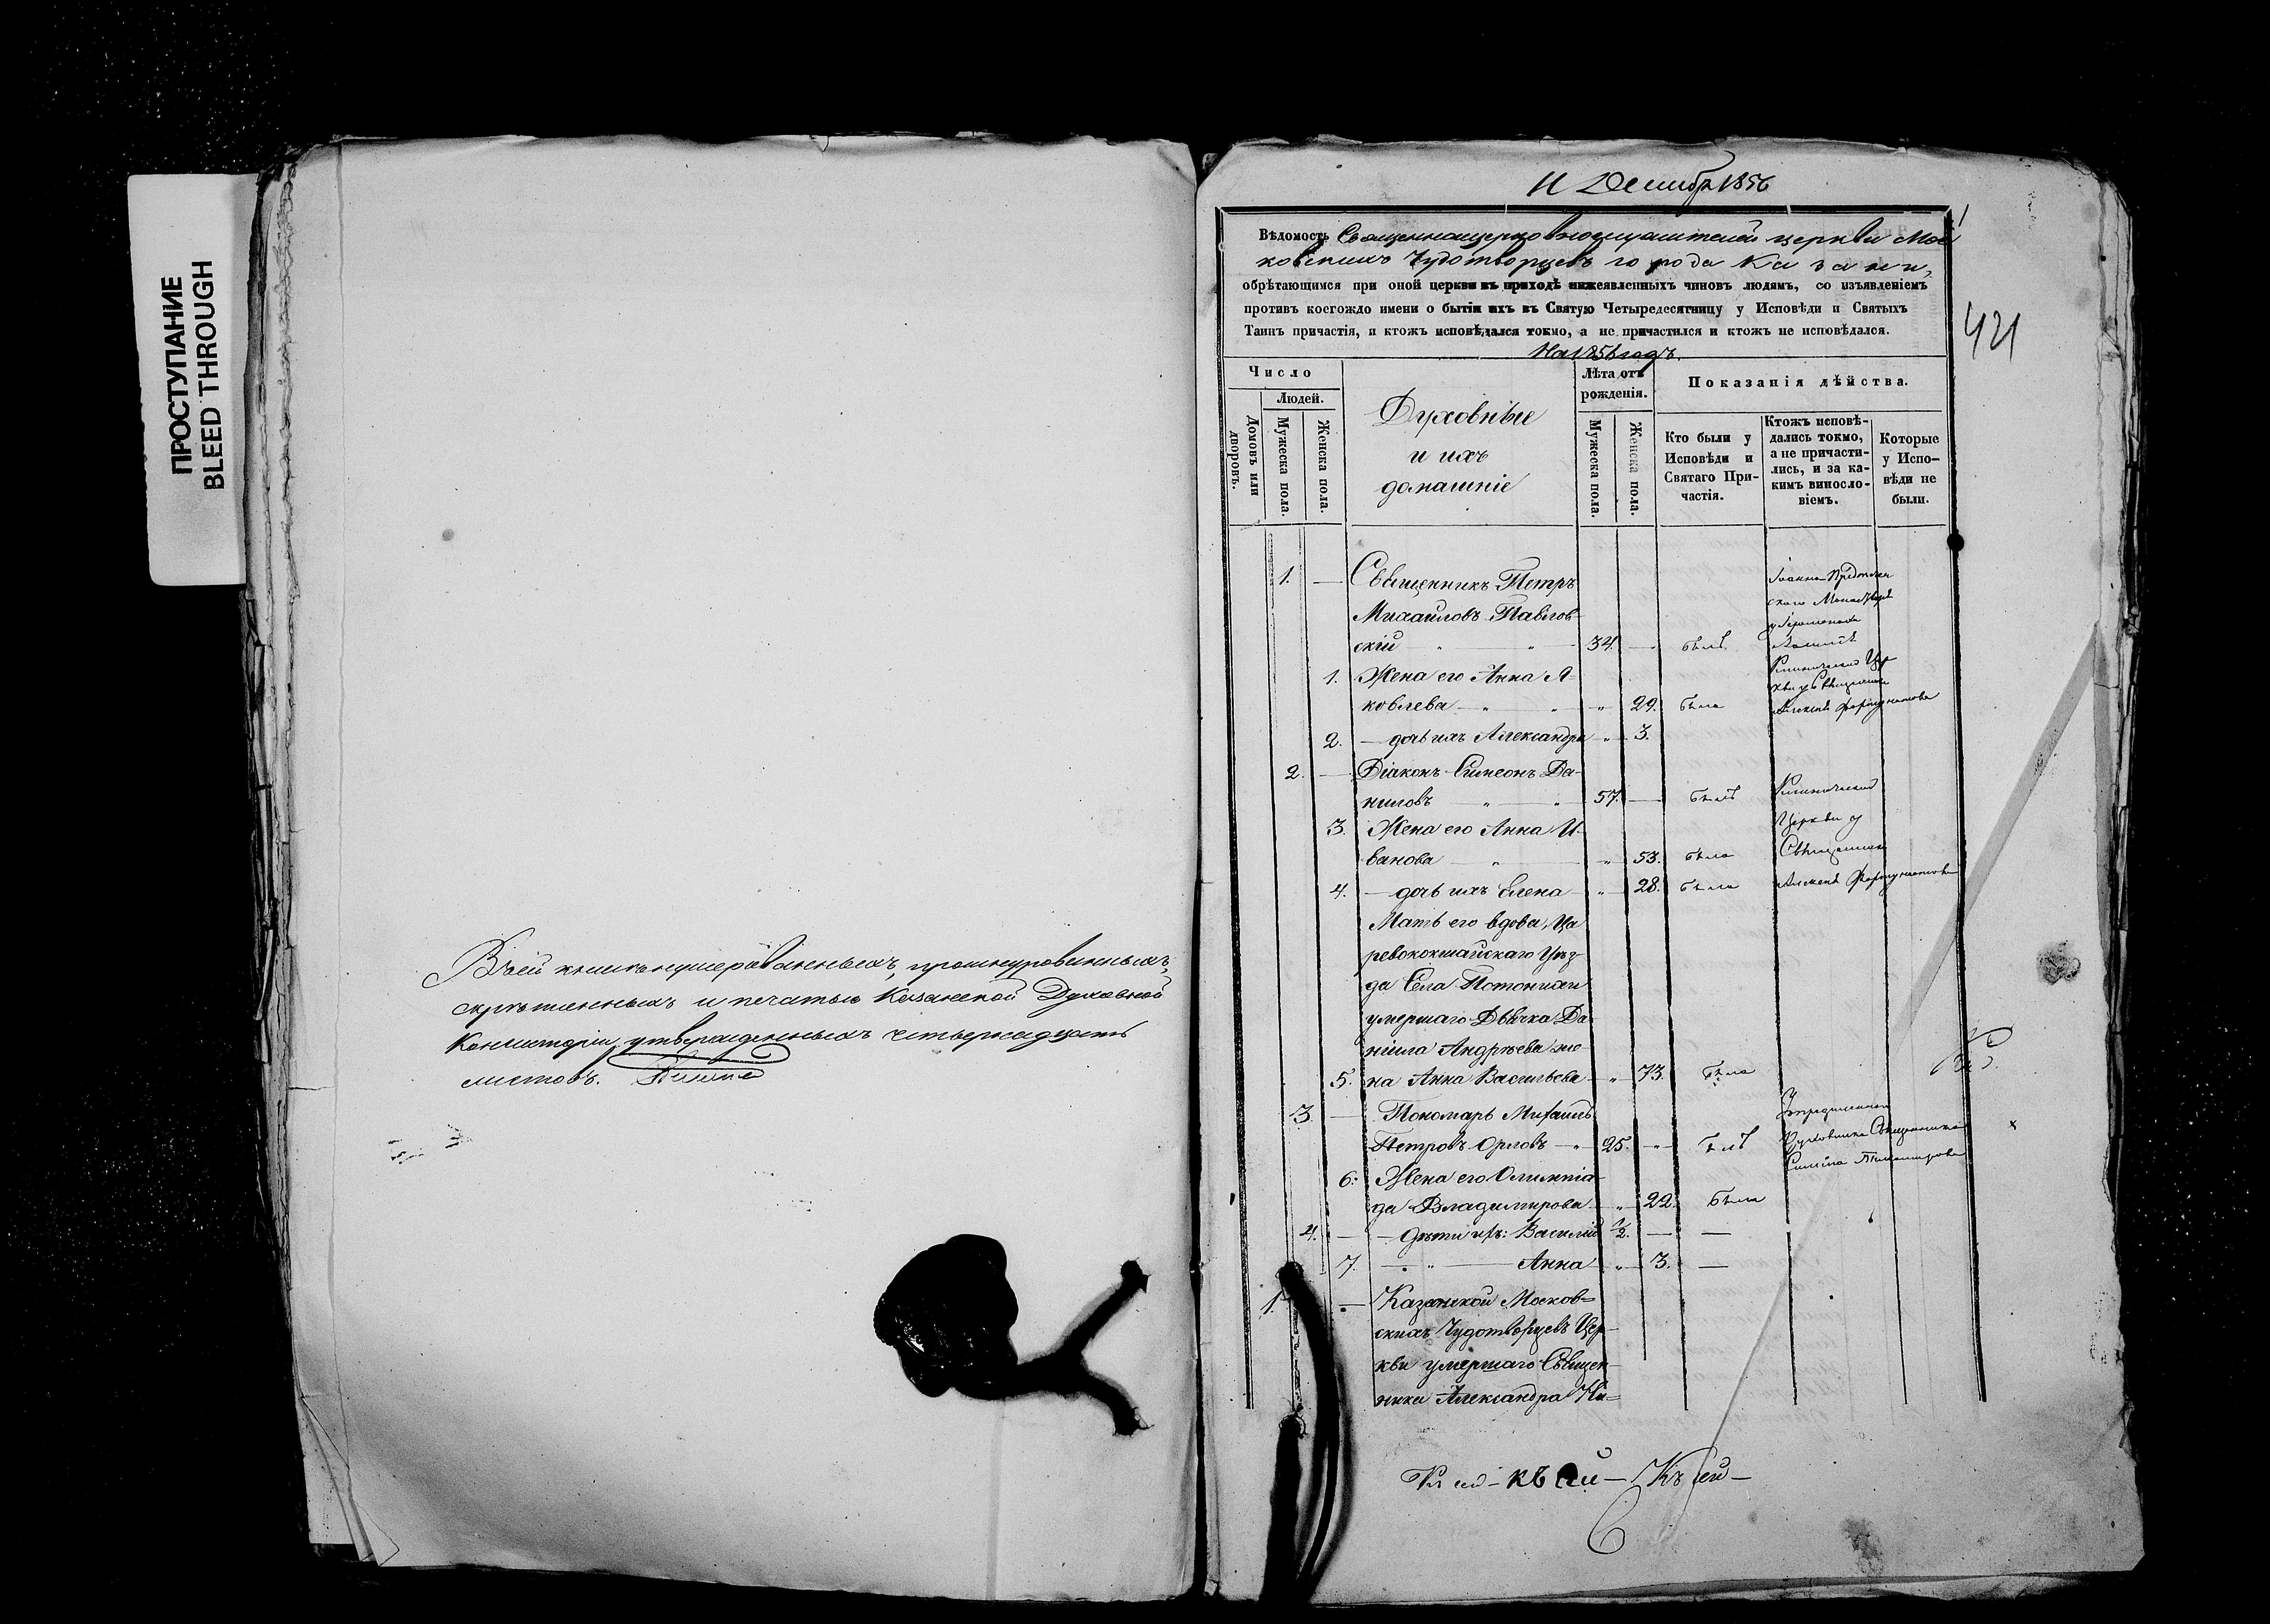 ПРОСТУПАНИЕ
BLEED THROUGH
В сей книге нумерованныхъ, прошнурованныхъ,
скрѣпленныхъ и печатью Казанской Духовной
Консисторіи утвержденныхъ четырнадцать
листовъ.
11 Декабря 1856
1
Вѣдомость Священноцерковнослужителей церкви Мос
ковскихъ Чудотворцевъ города Казани,
обрѣтающимся при оной церкви въ приходѣ нижеявленныхъ чиновъ людямъ, со изъявленіемъ
противъ коегождо имени о бытіи ихъ въ Святую Четыредесятницу у Исповѣди и Святыхъ
Таинъ причастія, и ктожъ исповѣдался токмо, а не причастился и ктожъ не исповѣдался.
На 1856 годъ.
421
Число
Людей.
Домовъ или дворовъ.
Мужеска пола.
Женска пола.
Духовные
и ихъ
домашніе
Лѣта отъ рожденія.
Мужеска пола.
Женска пола.
Показанія дѣйства.
Кто были у Исповѣди и Святаго Причастія.
Ктожъ исповѣ-
дались токмо,
а не причасти-
лись, и за ка-
кимъ виносло-
віемъ.
Которые
у Испо-
вѣди не
были.
1. — Священникъ Петръ
Михаиловъ Павлов-
скій 34. — былъ
1. Жена его Анна Я-
ковлева 29. была
2. — дочь ихъ Александра 3.
2. — Діаконъ Симеонъ Да-
ниловъ 57. — былъ
Церкви у
3. Жена его Анна И-
ванова 53. была Священника
4. — дочь ихъ Елена 28. была Алексѣя Фортунатова
Мать его вдова, Ца
ревококшайскаго Уѣз-
да Села
умершаго Дьячка Да-
ніила Андрѣева же-
5. на Анна Васильева 73. была
3. — Пономарь Михаилъ
Петровъ Орловъ 25. былъ Духовника Священника
6. Жена его Олимпіа-
да Владимирова 22. была
4. — дѣти ихъ: Василій 1/2. — —
7. Анна 3. —
1. — Казанской Москов=
скихъ Чудотворцевъ Цер-
кви умершаго Священ-
ника Александра Ни=
Къ сей — къ сей — Къ сей —